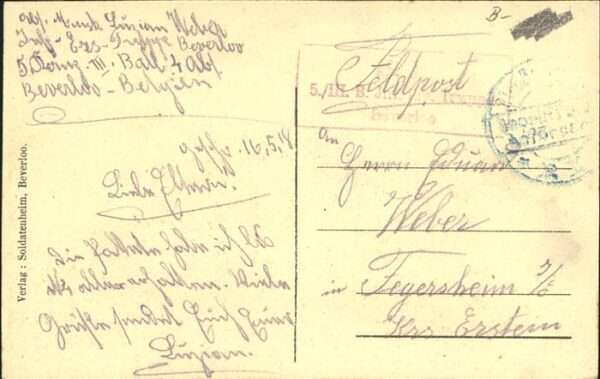 Abs. Musk. Luzian Weber
Inf.-Ers.-Truppe Beverloo
5. Komp. III. Batl. 4 Abt.
Beverloo - Belgien
B-
Feldpost
5./III. B.
Beverloo
geschr. 16,5,18.
Liebe Eltern!
Die Pakete habe ich
alles erhalten. Viele
Grüße sendet Euch Euer
Luzian.
An
Herrn Eduard
Weber
in Fegersheim i/E
Krs Erstein
Verlag: Soldatenheim, Beverloo.